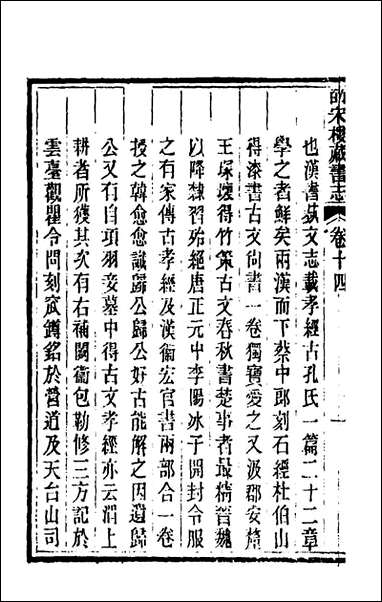 皕宋樓藏書志 卷十四 一
也漢書蓺文志載孝經古孔氏一篇二十二章
學之者鮮矣兩漢而下蔡中郎刻石經杜伯山
得漆書古文尚書一卷獨寶愛之又汲郡安釐
王塚壞得竹策古文春秋書楚事者最精晉魏
以降隸習殆絕唐正元中李陽冰子開封令服
之有家傳古孝經及漢衞宏官書兩部合一卷
授之韓愈愈識歸公歸公好古能解之因遺歸
公又有自項羽妾墓中得古文孝經亦云渭上
耕者所獲其次有右補闕衞包勒修三方記於
雲臺觀瞿令問刻窊鐏銘於營道及天台山司